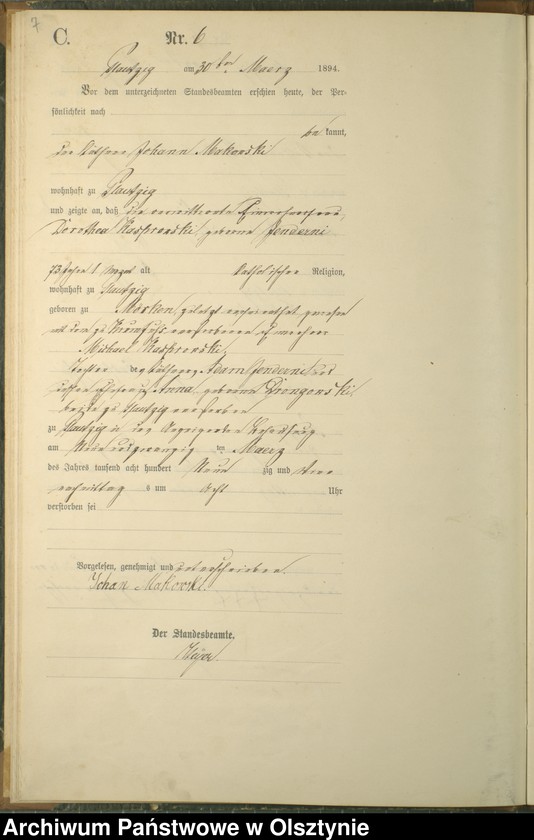 7
C. Nr. 6
Plautzig am 30ten Maerz 1894.
Vor dem unterzeichneten Standesbeamten erschien heute, der Per-
sönlichkeit nach
be kannt,
der Käthner Johann Makowski
wohnhaft zu Plautzig
und zeigte an, daß die verwittwete Einwohnerin
Dorothea Kasprowski, geborne Jenderni
73 Jahre 1 Monat alt katholischer Religion,
wohnhaft zu Plautzig
geboren zu Mörken, zuletzt verheirathet gewesen
mit dem zu verstorbenen Einwohner
Michael Kasprowski,
Tochter der Adam Jenderni und
dessen Ehefrau Anna, geborne Drongowski
beide zu Plautzig verstorben
zu Plautzig in der Behausung
am Neun und zwanzig ten Maerz
des Jahres tausend acht hundert Neun zig und vier
nachmittag s um acht Uhr
verstorben sei
Vorgelesen, genehmigt und unterschrieben.
Johan Makowski.
Der Standesbeamte.
Archiwum Państwowe w Olsztynie